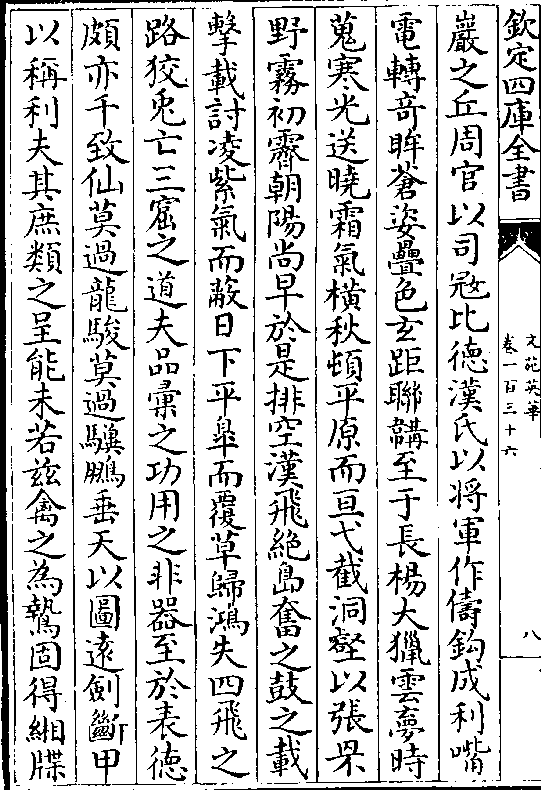 欽定四庫全書
文苑英華
卷一百三十六
八
巖之丘周官以司宼比德漢氏以將軍作儔鈎成利嘴
電轉竒眸蒼姿疊色玄距聯韝至于長楊大獵雲夢時
蒐寒光送曉霜氣橫秋頓平原而亘弋截洞壑以張罘
野霧初霽朝陽尚早於是排空漢飛絶島奮之鼓之載
擊載討凌紫氣而蔽日下平臯而覆草歸鴻失四飛之
路狡兎亡三窟之道夫品彚之功用之非器至於表德
頗亦千致仙莫過龍駿莫過驥鵬垂天以圖遠劍斷甲
以稱利夫其庶類之呈能未若兹禽之為鷙固得緗牒